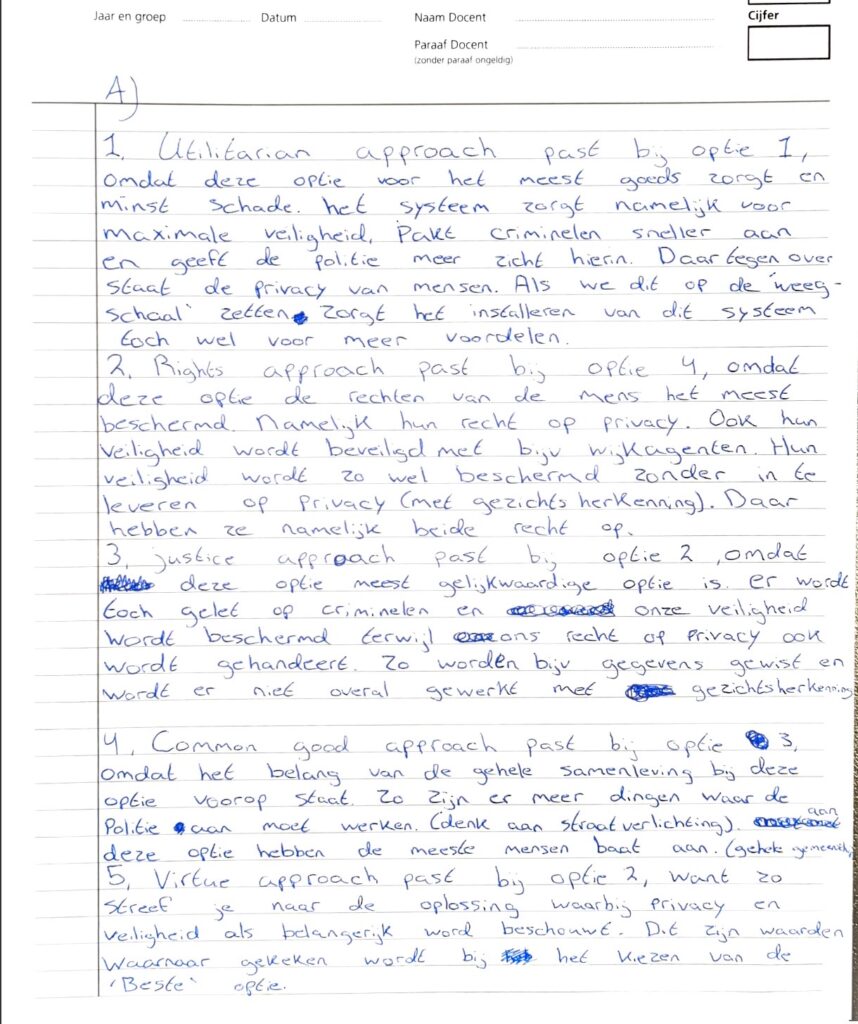 Jaar en groep Datum Naam Docent Cijfer
Paraaf Docent
(zonder paraaf ongeldig)
A)
1. Utilitarian approach past bij optie 1,
omdat deze optie voor het meest goeds zorgt en
minst schade. het systeem zorgt namelijk voor
maximale veiligheid, Pakt criminelen sneller aan
en geeft de politie meer zicht hierin. Daar tegen over
staat de privacy van mensen. Als we dit op de 'weeg-
schaal' zetten zorgt het installeren van dit systeem
toch wel voor meer voordelen.
2. Rights approach past bij optie 4, omdat
deze optie de rechten van de mens het meest
beschermd. Namelijk hun recht op privacy. Ook hun
veiligheid wordt beveiligd met bijv wijkagenten. Hun
veiligheid wordt zo wel beschermd zonder in te
leveren op privacy (met gezichts herkenning). Daar
hebben ze namelijk beide recht op.
3. justice approach past bij optie 2, omdat
deze optie meest gelijkwaardige optie is. er wordt
toch gelet op criminelen en onze veiligheid
wordt beschermd terwijl ons recht op Privacy ook
wordt gehandeert. Zo worden bijv gegevens gewist en
wordt er niet overal gewerkt met gezichtsherkenning
4. Common good approach past bij optie 3,
omdat het belang van de gehele samenleving bij deze
optie voorop staat. Zo zijn er meer dingen waar de
Politie aan moet werken. (denk aan straatverlichting). aan
deze optie hebben de meeste mensen baat aan. (gehele
5. Virtue approach past bij optie 2, want zo
streef je naar de oplossing waarbij Privacy en
veiligheid als belangerijk word beschouwt. Dit zijn waarden
waarnaar gekeken wordt bij het kiezen van de
'Beste' optie.